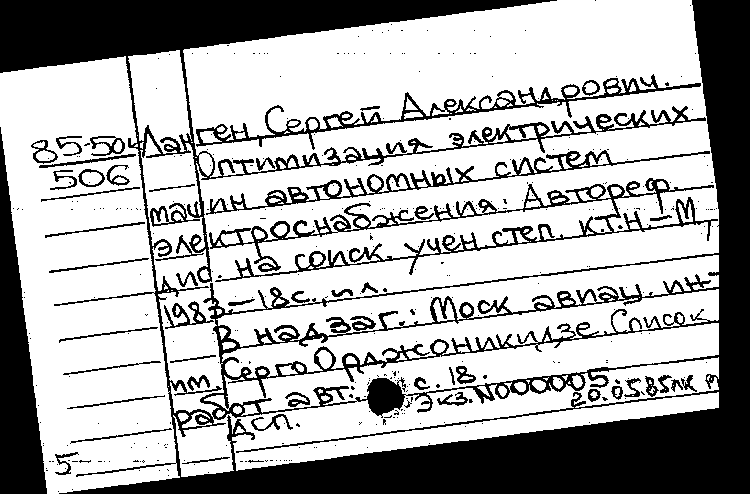 85-504 Ланген, Сергей Александрович.
506 Оптимизация электрических
машин автономных систем
электроснабжения: Автореф.
дис. на соиск. учен. степ. к.т.н. – М,
1983. – 18 с., ил.
В надзаг.: Моск. авиац. ин-
им. Серго Орджоникидзе. Список
работ авт.: с. 18.
ДСП. Экз. N000005
20.05.85
5